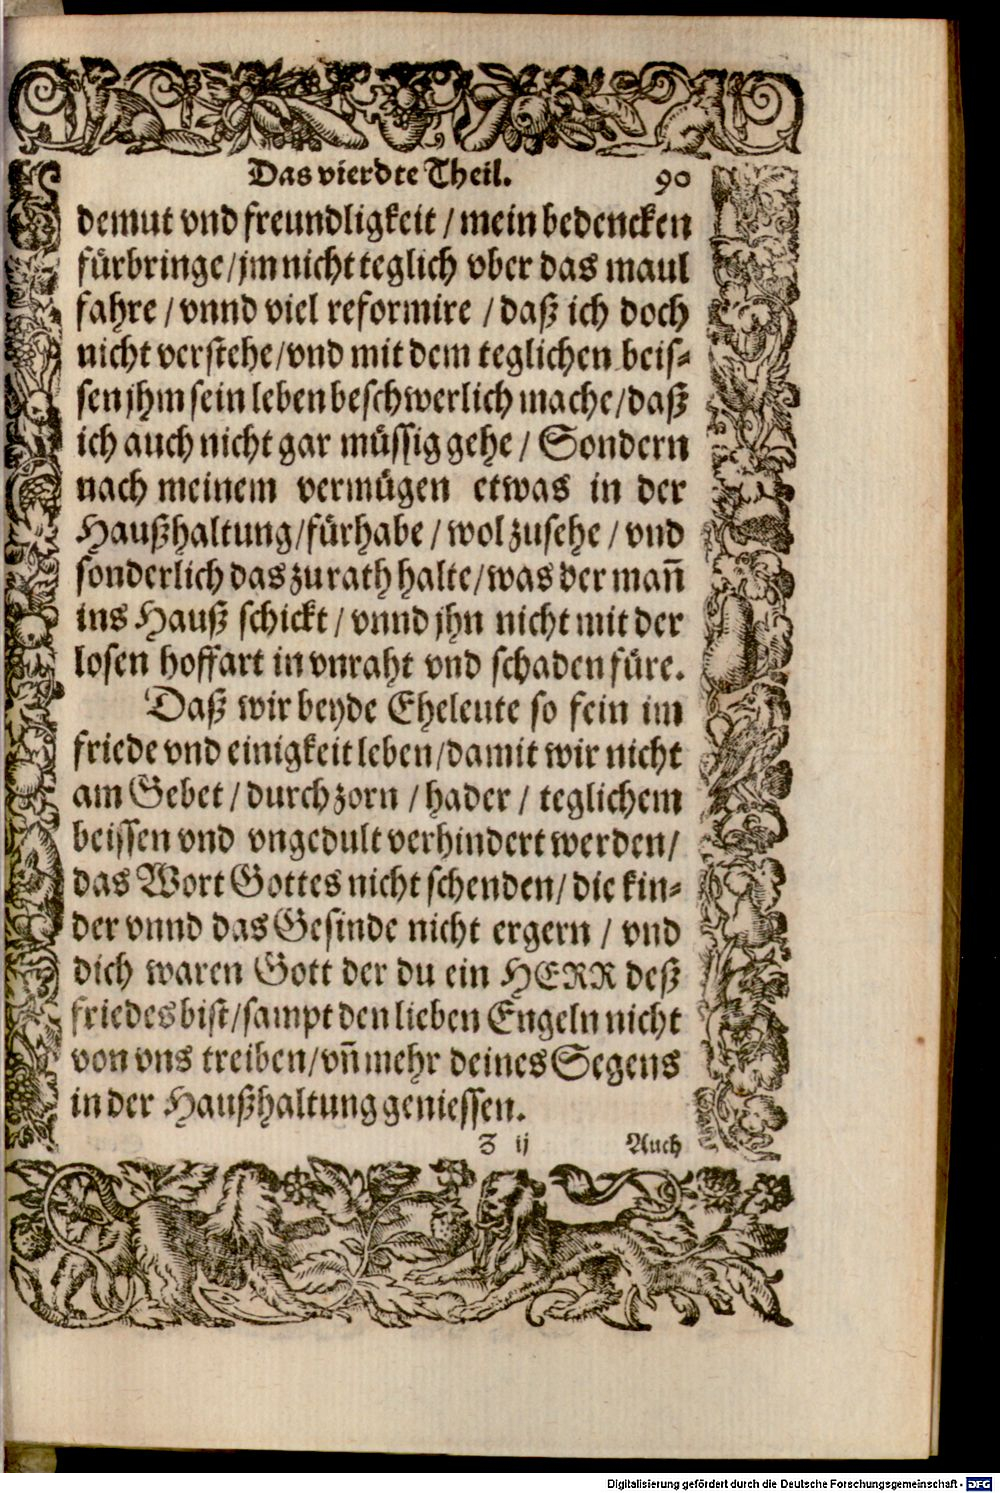 Das vierdte Theil. 90
demut vnd freundligkeit / mein bedencken
fürbringe / jm nicht teglich vber das maul
fahre / vnnd viel reformire / daß ich doch
nicht verstehe / vnd mit dem teglichen beis-
sen jhm sein leben beschwerlich mache / daß
ich auch nicht gar müssig gehe / Sondern
nach meinem vermügen etwas in der
Haußhaltung / fürhabe / wol zusehe / vnd
sonderlich das zu rath halte / was der mañ
ins Hauß schickt / vnnd jhn nicht mit der
losen hoffart in vnraht vnd schaden füre.
Daß wir beyde Eheleute so fein im
friede vnd einigkeit leben / damit wir nicht
am Gebet / durch zorn / hader / teglichem
beissen vnd vngedult verhindert werden /
das Wort Gottes nicht schenden / die kin-
der vnnd das Gesinde nicht ergern / vnd
dich waren Gott der du ein HERR deß
friedes bist / sampt den lieben Engeln nicht
von vns treiben / vñ mehr deines Segens
in der Haußhaltung geniessen.
Z ij Auch
Digitalisierung gefördert durch die Deutsche Forschungsgemeinschaft - DFG